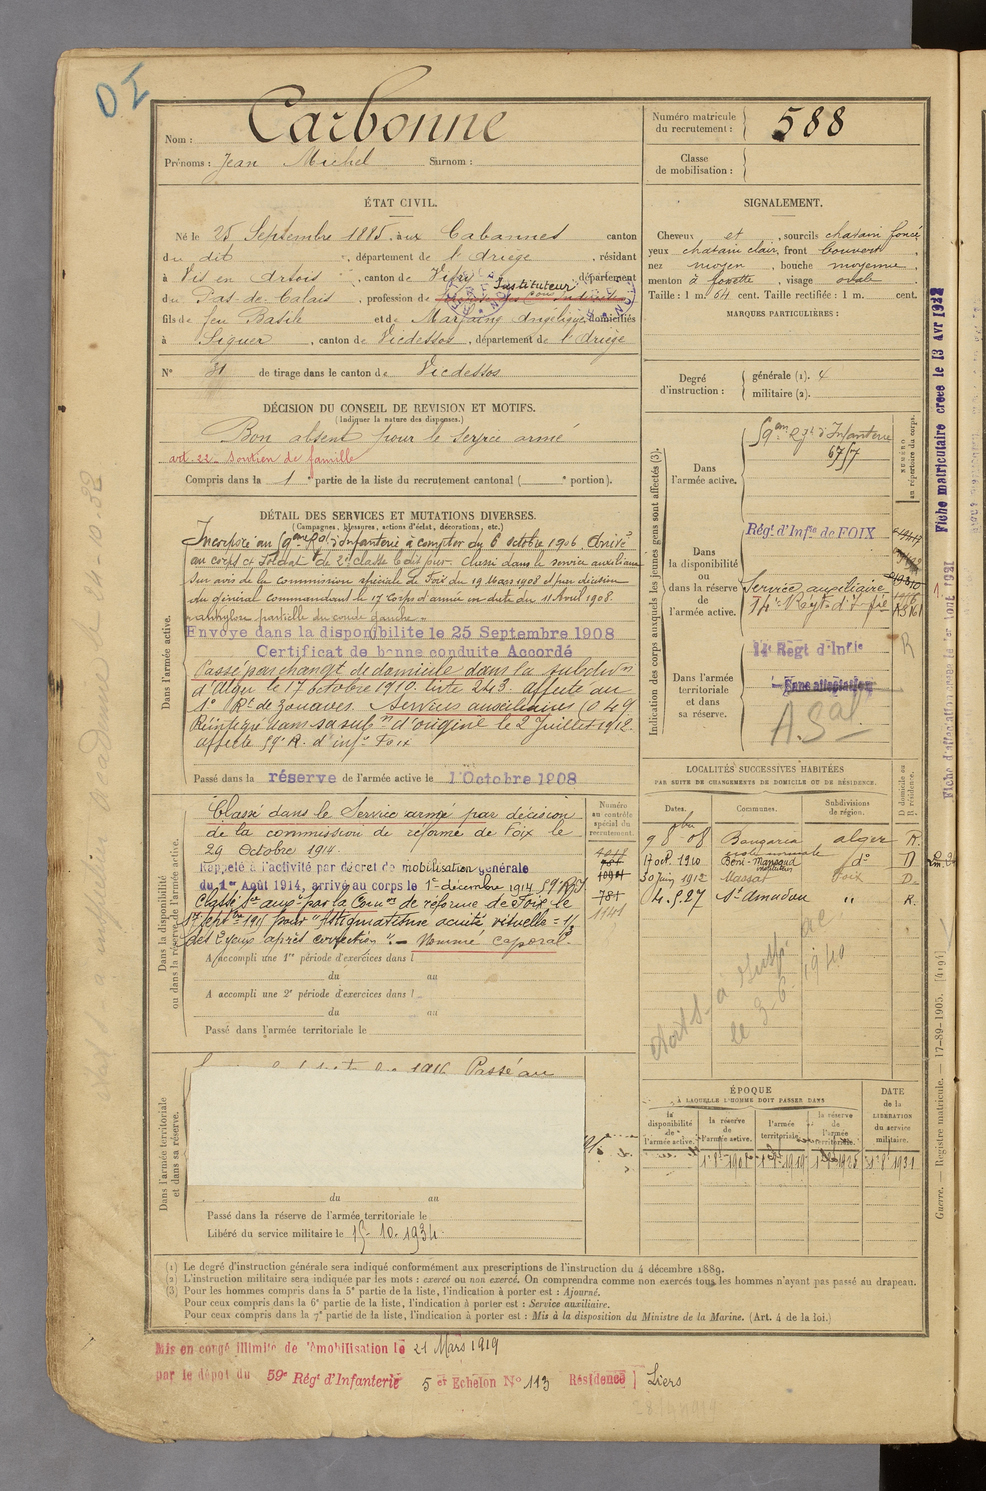 DI
Nom : Carbonne
Prénoms : Jean Michel Surnom :
Numéro matricule du recrutement : 588
Classe de mobilisation :
ÉTAT CIVIL.
Né le 25 Septembre 1885, aux Cabannes canton
du dit, département de l'Ariège, résidant
à Vis en Artois, canton de Vitry, département
du Pas-de-Calais, profession de Instituteur
fils de feu Basile et de Marfaing Angélique domiciliés
à Siguer, canton de Vicdessos, département de l'Ariège
N° 31 de tirage dans le canton de Vicdessos
SIGNALEMENT.
Cheveux et, sourcils chatain foncé
yeux chatain clair, front couvert
nez moyen, bouche moyenne,
menton à fossette, visage ovale
Taille : 1 m. 64 cent. Taille rectifiée : 1 m. cent.
MARQUES PARTICULIÈRES :
Degré d'instruction : générale (1). 4
militaire (2).
DÉCISION DU CONSEIL DE REVISION ET MOTIFS.
(Indiquer la nature des dispenses.)
Bon absent pour le service armé
art. 22. Soutien de famille
Compris dans la 1e partie de la liste du recrutement cantonal ( e portion).
DÉTAIL DES SERVICES ET MUTATIONS DIVERSES.
(Campagnes, blessures, actions d'éclat, décorations, etc.)
Dans l'armée active.
Incorporé au 59eme Rgt d'infanterie à compter du 6 octobre 1906. Arrivé
au corps et Soldat de 2e classe le dit jour. Classé dans le service auxiliaire
sur avis de la Commission spéciale de Foix du 19 Mars 1908 et par décision
du général commandant le 17 Corps d'armée en date du 11 Avril 1908.
"ankylose partielle du coude gauche"
Envoyé dans la disponibilité le 25 Septembre 1908
Certificat de bonne conduite Accordé
Passé par changt de domicile dans la subdivon
d'Alger le 17 octobre 1910. liste 243. affecté au
1er Rt de Zouaves. Services auxiliaires
Réintégré dans sa subon d'origine le 2 Juillet 1912.
affecté 59e R. d'infie Foix
Passé dans la réserve de l'armée active le 1 Octobre 1908
Indication des corps auxquels les jeunes gens sont affectés (3).
NUMÉRO au répertoire du corps.
Dans l'armée active. 59em Rgt d'Infanterie
6757
Dans la disponibilité ou dans la réserve de l'armée active.
Régt d'Infie de FOIX
Service auxiliaire
Dans l'armée territoriale et dans sa réserve.
14e Regt d'Infie
Sans affectation
A. Sal
R
Dans la disponibilité ou dans la réserve de l'armée active.
Numéro au contrôle spécial du recrutement.
Classé dans le Service armé par décision
de la commission de réforme de Foix le
29 Octobre 1914.
Rappelé à l'activité par décret de mobilisation générale
du 1er Août 1914, arrivé au corps le 1er décembre 1914 59e RI
Classé Sce auxre par la Comon de réforme de Foix le
pour "Astigmatisme acuité visuelle =
des 2 yeux après correction". — Nommé caporal.
781
1141
A accompli une 1re période d'exercices dans l
du au
A accompli une 2e période d'exercices dans l
du au
Passé dans l'armée territoriale le
LOCALITÉS SUCCESSIVES HABITÉES
PAR SUITE DE CHANGEMENTS DE DOMICILE OU DE RÉSIDENCE.
Dates. Communes. Subdivisions de région. D domicile ou R résidence.
9 8bre 08 Bouzaréa école normale alger R.
17 oct. 1910 Beni-Mansour do D
30 Juin 1912 Massat Foix D.
4.5.27 St Amadou " R.
le 3-6-1940
Dans l'armée territoriale et dans sa réserve.
1916 Passé au
du au
Passé dans la réserve de l'armée territoriale le
Libéré du service militaire le 15-10-1934
ÉPOQUE
À LAQUELLE L'HOMME DOIT PASSER DANS
la disponibilité de l'armée active.
la réserve de l'armée active.
l'armée territoriale.
la réserve de l'armée territoriale.
DATE de la LIBÉRATION du service militaire.
(1) Le degré d'instruction générale sera indiqué conformément aux prescriptions de l'instruction du 4 décembre 1889.
(2) L'instruction militaire sera indiquée par les mots : exercé ou non exercé. On comprendra comme non exercés tous les hommes n'ayant pas passé au drapeau.
(3) Pour les hommes compris dans la 5e partie de la liste, l'indication à porter est : Ajourné.
Pour ceux compris dans la 6e partie de la liste, l'indication à porter est : Service auxiliaire.
Pour ceux compris dans la 7e partie de la liste, l'indication à porter est : Mis à la disposition du Ministre de la Marine. (Art. 4 de la loi.)
Mis en congé illimité de démobilisation le 21 Mars 1919
par le dépôt du 59e Régt d'Infanterie 5 et Echelon No 113 Résidence Liers
Guerre. — Registre matricule. — 17-89-1905. [4194]